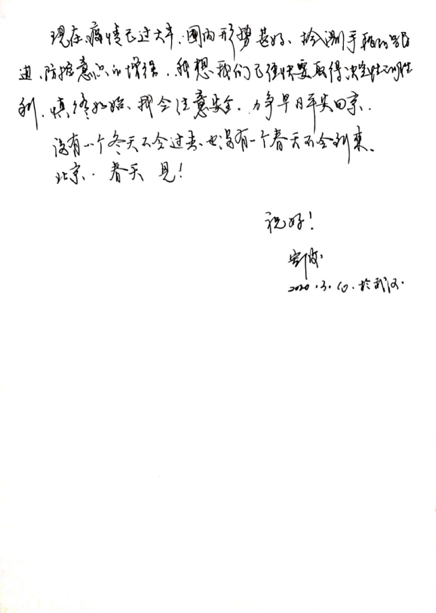 现在疫情已过大半，国内形势甚好、检测手段的跟
进，防控意识的增强，我想我们已经快要取得决定性的胜
利，慎终如始、我会注意安全，力争早日平安回京．
没有一个冬天不会过去，也没有一个春天不会到来．
北京．春天见！
祝好！
2020.3.10．于武汉．